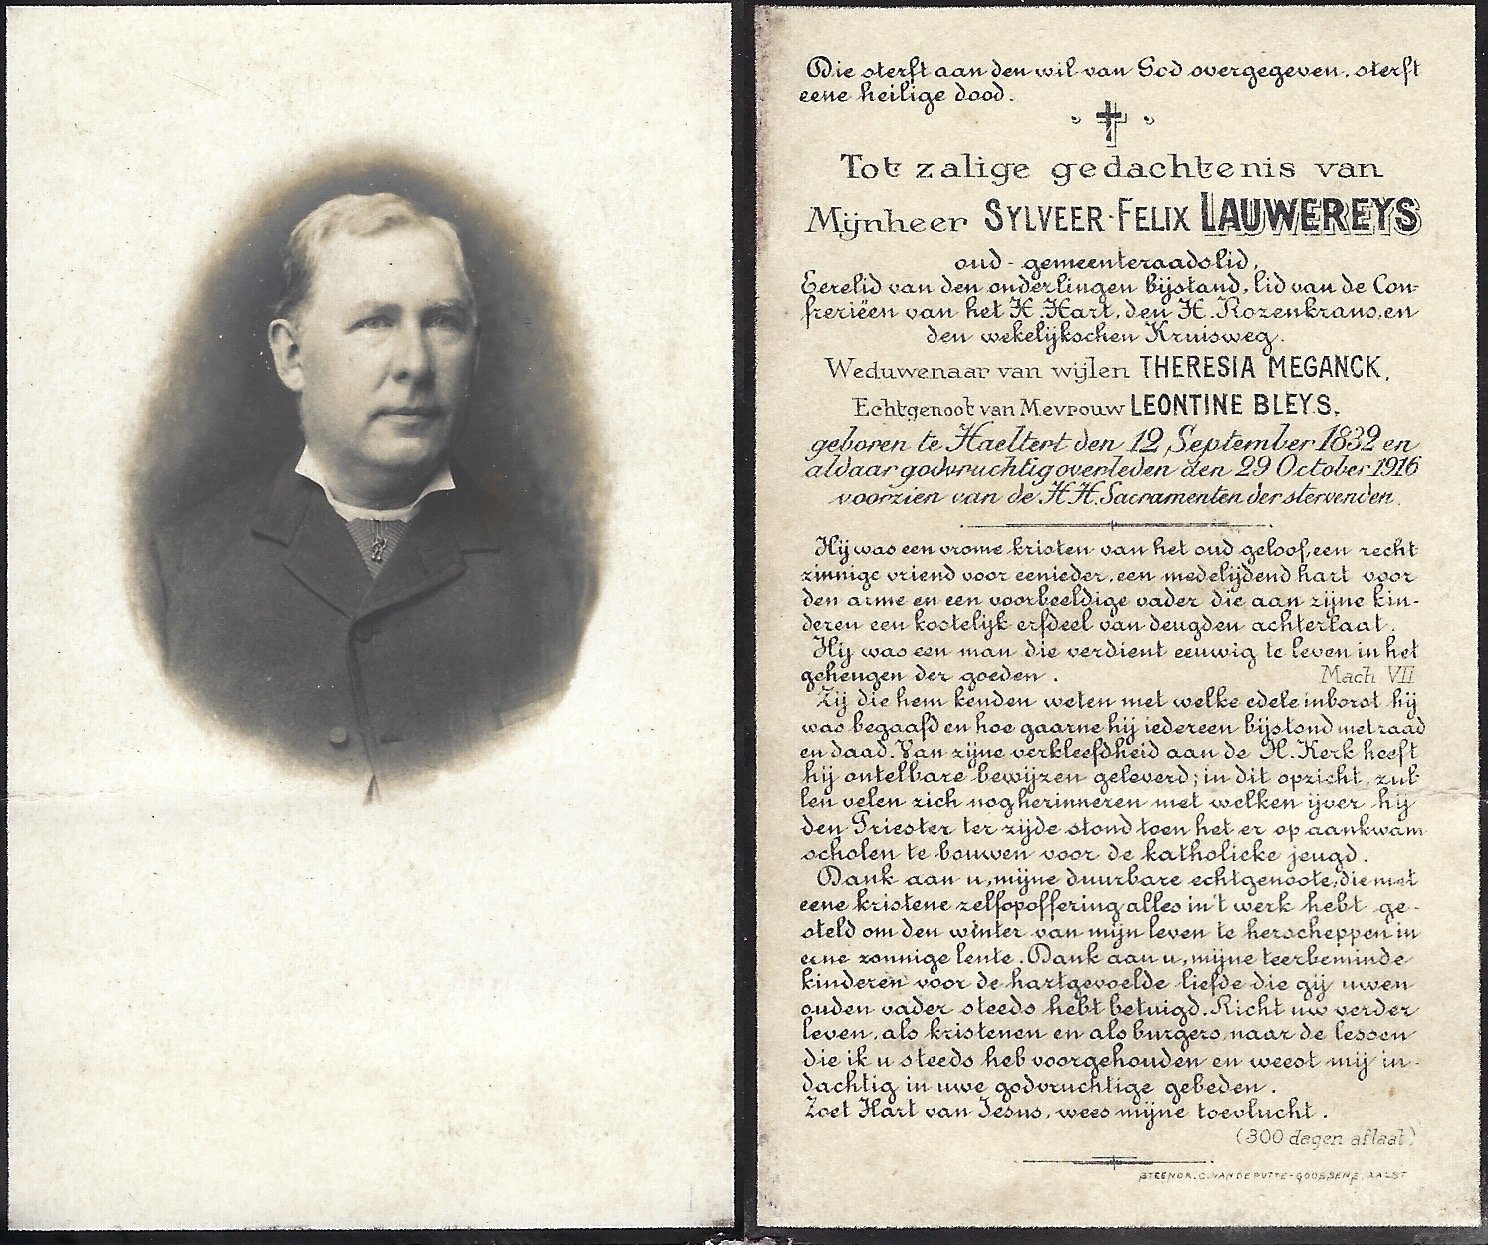 Die sterft aan den wil van God overgegeven, sterft
eene heilige dood.
Tot zalige gedachtenis van
Mijnheer SYLVEER-FELIX LAUWEREYS
oud-gemeenteraadslid,
Eerelid van den onderlingen bijstand, lid van de Con-
freriëen van het H. Hart, den H. Rozenkrans, en
den wekelijkschen Kruisweg.
Weduwenaar van wijlen THERESIA MEGANCK,
Echtgenoot van Mevrouw LEONTINE BLEYS,
geboren te Haeltert den 12 September 1832 en
aldaar godvruchtig overleden den 29 October 1916
voorzien van de H.H. Sacramenten der stervenden.
Hij was een vrome kristen van het oud geloof, een recht-
zinnige vriend voor eenieder, een medelijdend hart voor
den arme en een voorbeeldige vader die aan zijne kin-
deren een kostelijk erfdeel van deugden achterlaat.
Hij was een man die verdient eeuwig te leven in het
geheugen der goeden. Mach VII
Zij die hem kenden weten met welke edele inborst hij
was begaafd en hoe gaarne hij iedereen bijstond met raad
en daad. Van zijne verkleefdheid aan de H. Kerk heeft
hij ontelbare bewijzen geleverd; in dit opzicht zul-
len velen zich nog herinneren met welken ijver hij
den Priester ter zijde stond toen het er op aankwam
scholen te bouwen voor de katholieke jeugd.
Dank aan u, mijne duurbare echtgenoote, die met
eene kristene zelfopoffering alles in't werk hebt ge-
steld om den winter van mijn leven te herscheppen in
eene zonnige lente. Dank aan u, mijne teerbeminde
kinderen voor de hartgevoelde liefde die gij uwen
ouden vader steeds hebt betuigd. Richt uw verder
leven, als kristenen en als burgers, naar de lessen
die ik u steeds heb voorgehouden en weest mij in-
dachtig in uwe godvruchtige gebeden.
Zoet Hart van Jesus, wees mijne toevlucht.
(300 dagen aflaat)
STEENDR. C. VAN DE PUTTE-GOOSSENS, AALST